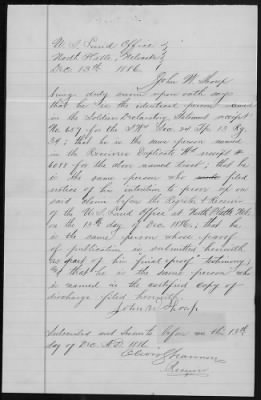 U.S. Land Office
North Platte, Nebraska
Dec. 13th 1886.
John W. Thorp
being duly sworn upon oath says
that he is the identical person named
in the Soldiers Declaratory Statement receipt
No 657 for the Sec. 34 Tp 13 Rg.
39; that he is the same person named
in the Receivers Duplicate receipt
for the above named tract; that he
is the same person who filed
notice of his intention to prove up on
said claim before the Register & Receiver
of the U.S. Land Office at North Platte Neb.
on the 13th day of Dec. 1886; that he
is the same person whose proof
of publication is submitted herewith
as part of his final proof testimony;
that he is the same person who
is named in the certified copy of
discharge filed herewith.
John W. Thorp
Subscribed and Sworn to before me this 13th
day of Dec. A.D. 1886
Shannon
Receiver